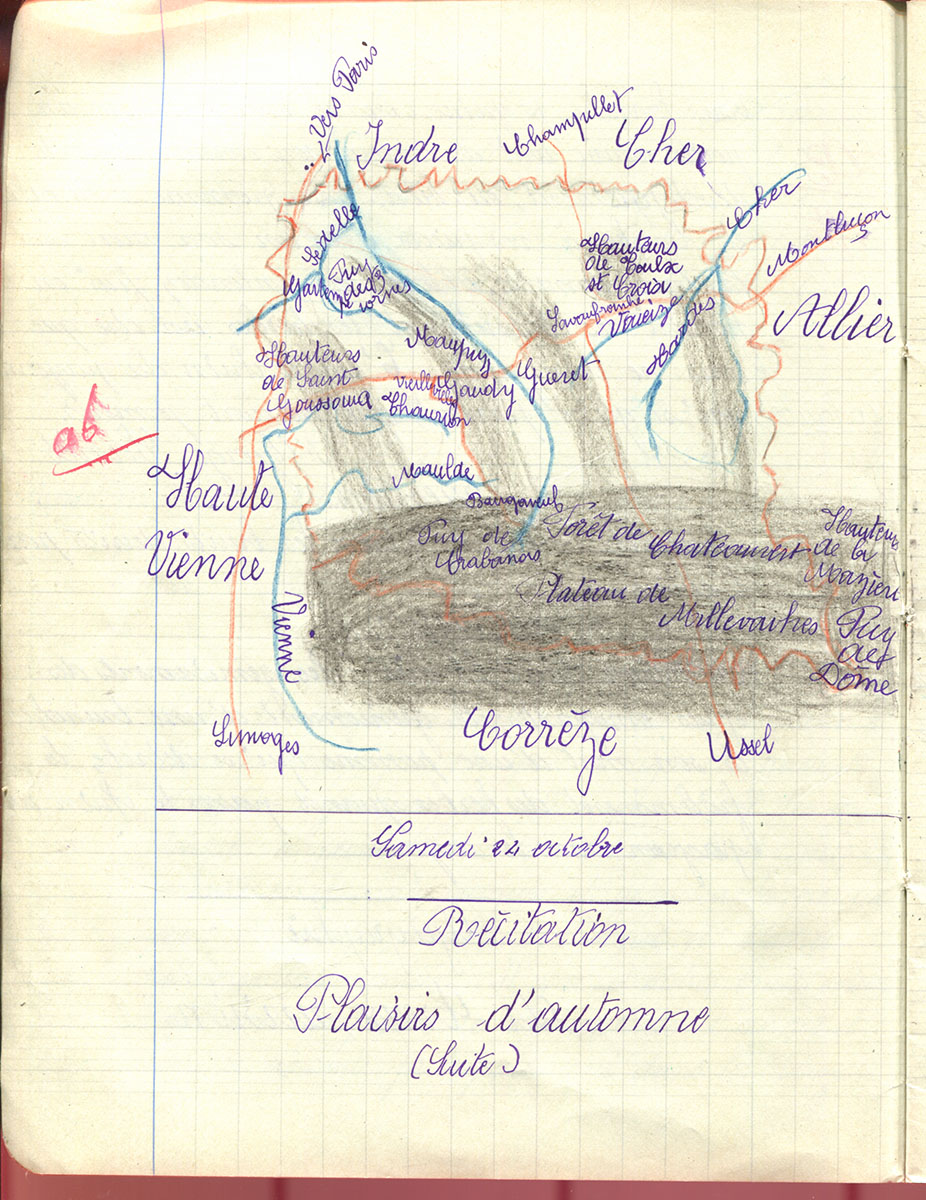 Vers Paris
Indre
Champillet
Cher
Cher
Montluçon
Sédelle
Hauteurs
de Toulx
st Croix
Puy
des 3
cornes
Lavaufranche
Vëueize
Allier
Maupuy
Tardes
Hauteurs
de Saint
Goussoud
Gueret
Gaudy
Vieilleville
Thaurion
ab
Haute
Vienne
Maulde
Bourganeuf
Puy de
Crabanas
Forêt de
Chateauvert
Hauteurs
de la
Mazière
Plateau de
Millevaches
Puy
de
Dôme
Vienne
Limoges
Corrèze
Ussel
Samedi 24 octobre
Récitation
Plaisirs d'automne
(Suite)